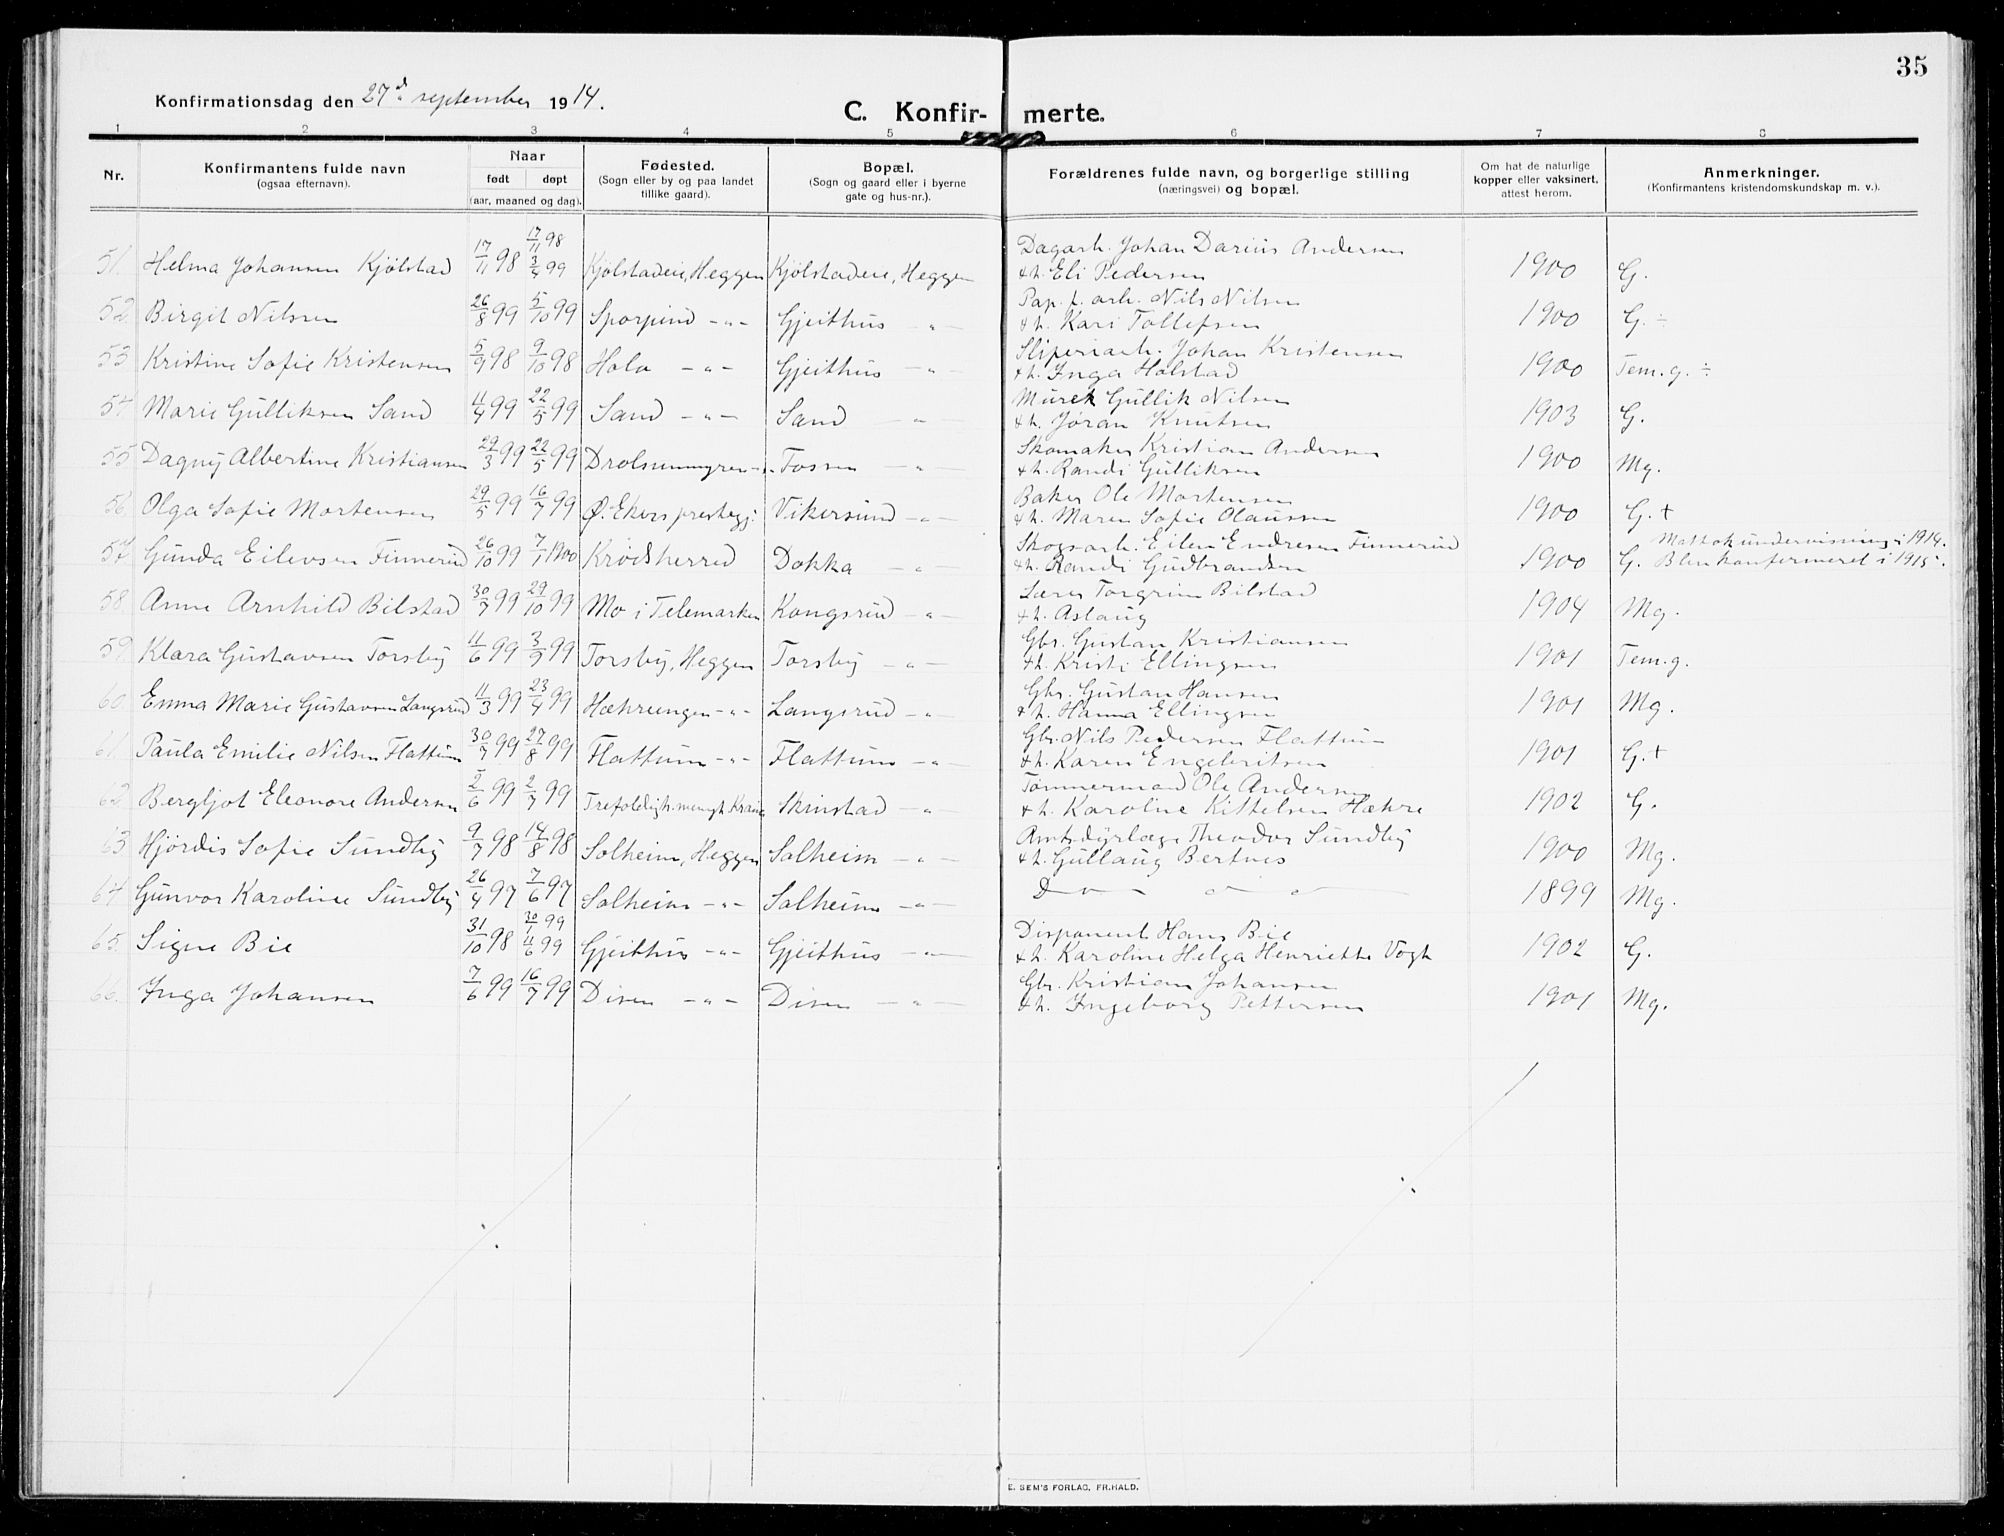 35
Konfirmationsdag den 27d september 1914.
C. Konfir- merte.
1 2 3 4 5 6 7 8
Nr. Konfirmantens fulde navn (ogsaa efternavn). Naar født døpt (aar, maaned og dag). Fødested. (Sogn eller by og paa landet tillike gaard). Bopæl. (Sogn og gaard eller i byerne gate og hus-nr.). Forældrenes fulde navn, og borgerlige stilling (næringsvei) og bopæl. Om hat de naturlige kopper eller vaksinert, attest herom. Anmerkninger. (Konfirmantens kristendomskundskap m. v.).
51. Helma Johansen Kjölstad 17/11 98 17/11 98 3/4 99 Kjölstadeie, Heggen Kjölstadeie, Heggen Dagarb. Johan Darius Andersen & h. Eli Pedersen 1900 G.
52. Birgit Nilsen 26/8 99 5/10 99 -"- Gjeithus -"- Pap. f. arb. Nils Nilsen & h. Kari Tollefsen 1900 G. ÷
53 Kristine Sofie Kristensen 5/9 98 9/10 98 Holo -"- Gjeithus -"- Sliperiarb. Johan Kristensen & h. Inga Holstad 1900 Tem. g. ÷
54. Marie Gulliksen Sand 11/4 99 22/5 99 Sand -"- Sand -"- Murer Gullik Nilsen & h. Jøran Knutsen 1903 G.
55 Dagny Albertine Kristiansen 29/3 99 22/5 99 Drolsumngren -"- Fossen -"- Skomaker Kristian Andersen & h. Randi Gulliksen 1900 Mg.
56. Olga Sofie Mortensen 29/5 99 16/7 99 Ø. Ekers prestegj. Vikersund -"- Baker Ole Mortensen & h. Maren Sofie Olaussen 1900 G. +
57. Gunda Eilevsen Finnerud 26/10 99 7/1 1900 Krødsherred Dokka -"- Skogsarb. Eilev Endresen Finnerud & h. Randi Gudbrandsen 1900 G. Mottok undervisning i 1914. Blev konfirmeret i 1915.
58. Anne Arnhild Bilstad 30/7 99 29/10 99 Mo i Telemarken Kongsrud -"- Lærer Torgrim Bilstad & h. Aslaug 1904 Mg.
59. Klara Gustavsen Torsby 11/6 99 3/9 99 Torsby, Heggen Torsby -"- Gbr. Gustav Kristiansen & h. Kristi Ellingsen 1901 Tem. g.
60. Emma Marie Gustavsen Langsrud 11/3 99 23/4 99 Hæhreengen -"- Langsrud -"- Gbr. Gustav Hansen & h. Hanna Ellingsen 1901 Mg.
61. Paula Emilie Nilsen Flattum 30/7 99 27/8 99 Flattum -"- Flattum -"- Gbr. Nils Pedersen Flattum & h. Karen Engebritsen 1901 G. +
62. Bergljot Eleonore Andersen 2/6 99 2/7 99 Trefoldigh. menigh. Kr.ania Skinstad -"- Tømmermand Ole Andersen & h. Karoline Kittelsen Hæhre 1902 G.
63 Hjördis Sofie Sundby 9/7 98 14/8 98 Solheim, Heggen Solheim -"- Amtsdyrlæge Theodor Sundby & h. Gullaug Bertnes 1900 Mg.
64. Gunvor Karoline Sundby 26/4 97 7/6 97 Solheim -"- Solheim -"- D o o o 1899 Mg.
65. Signe Bie 31/10 98 30/1 99 4/6 99 Gjeithus -"- Gjeithus -"- Disponent Hans Bie & h. Karoline Helga Henriette Vogt 1902 G.
66. Inga Johansen 7/6 99 16/7 99 Disen -"- Disen -"- Gbr. Kristian Johansen & h. Ingeborg Pettersen 1901 Mg.
E. SEM'S FORLAG, FR.HALD.